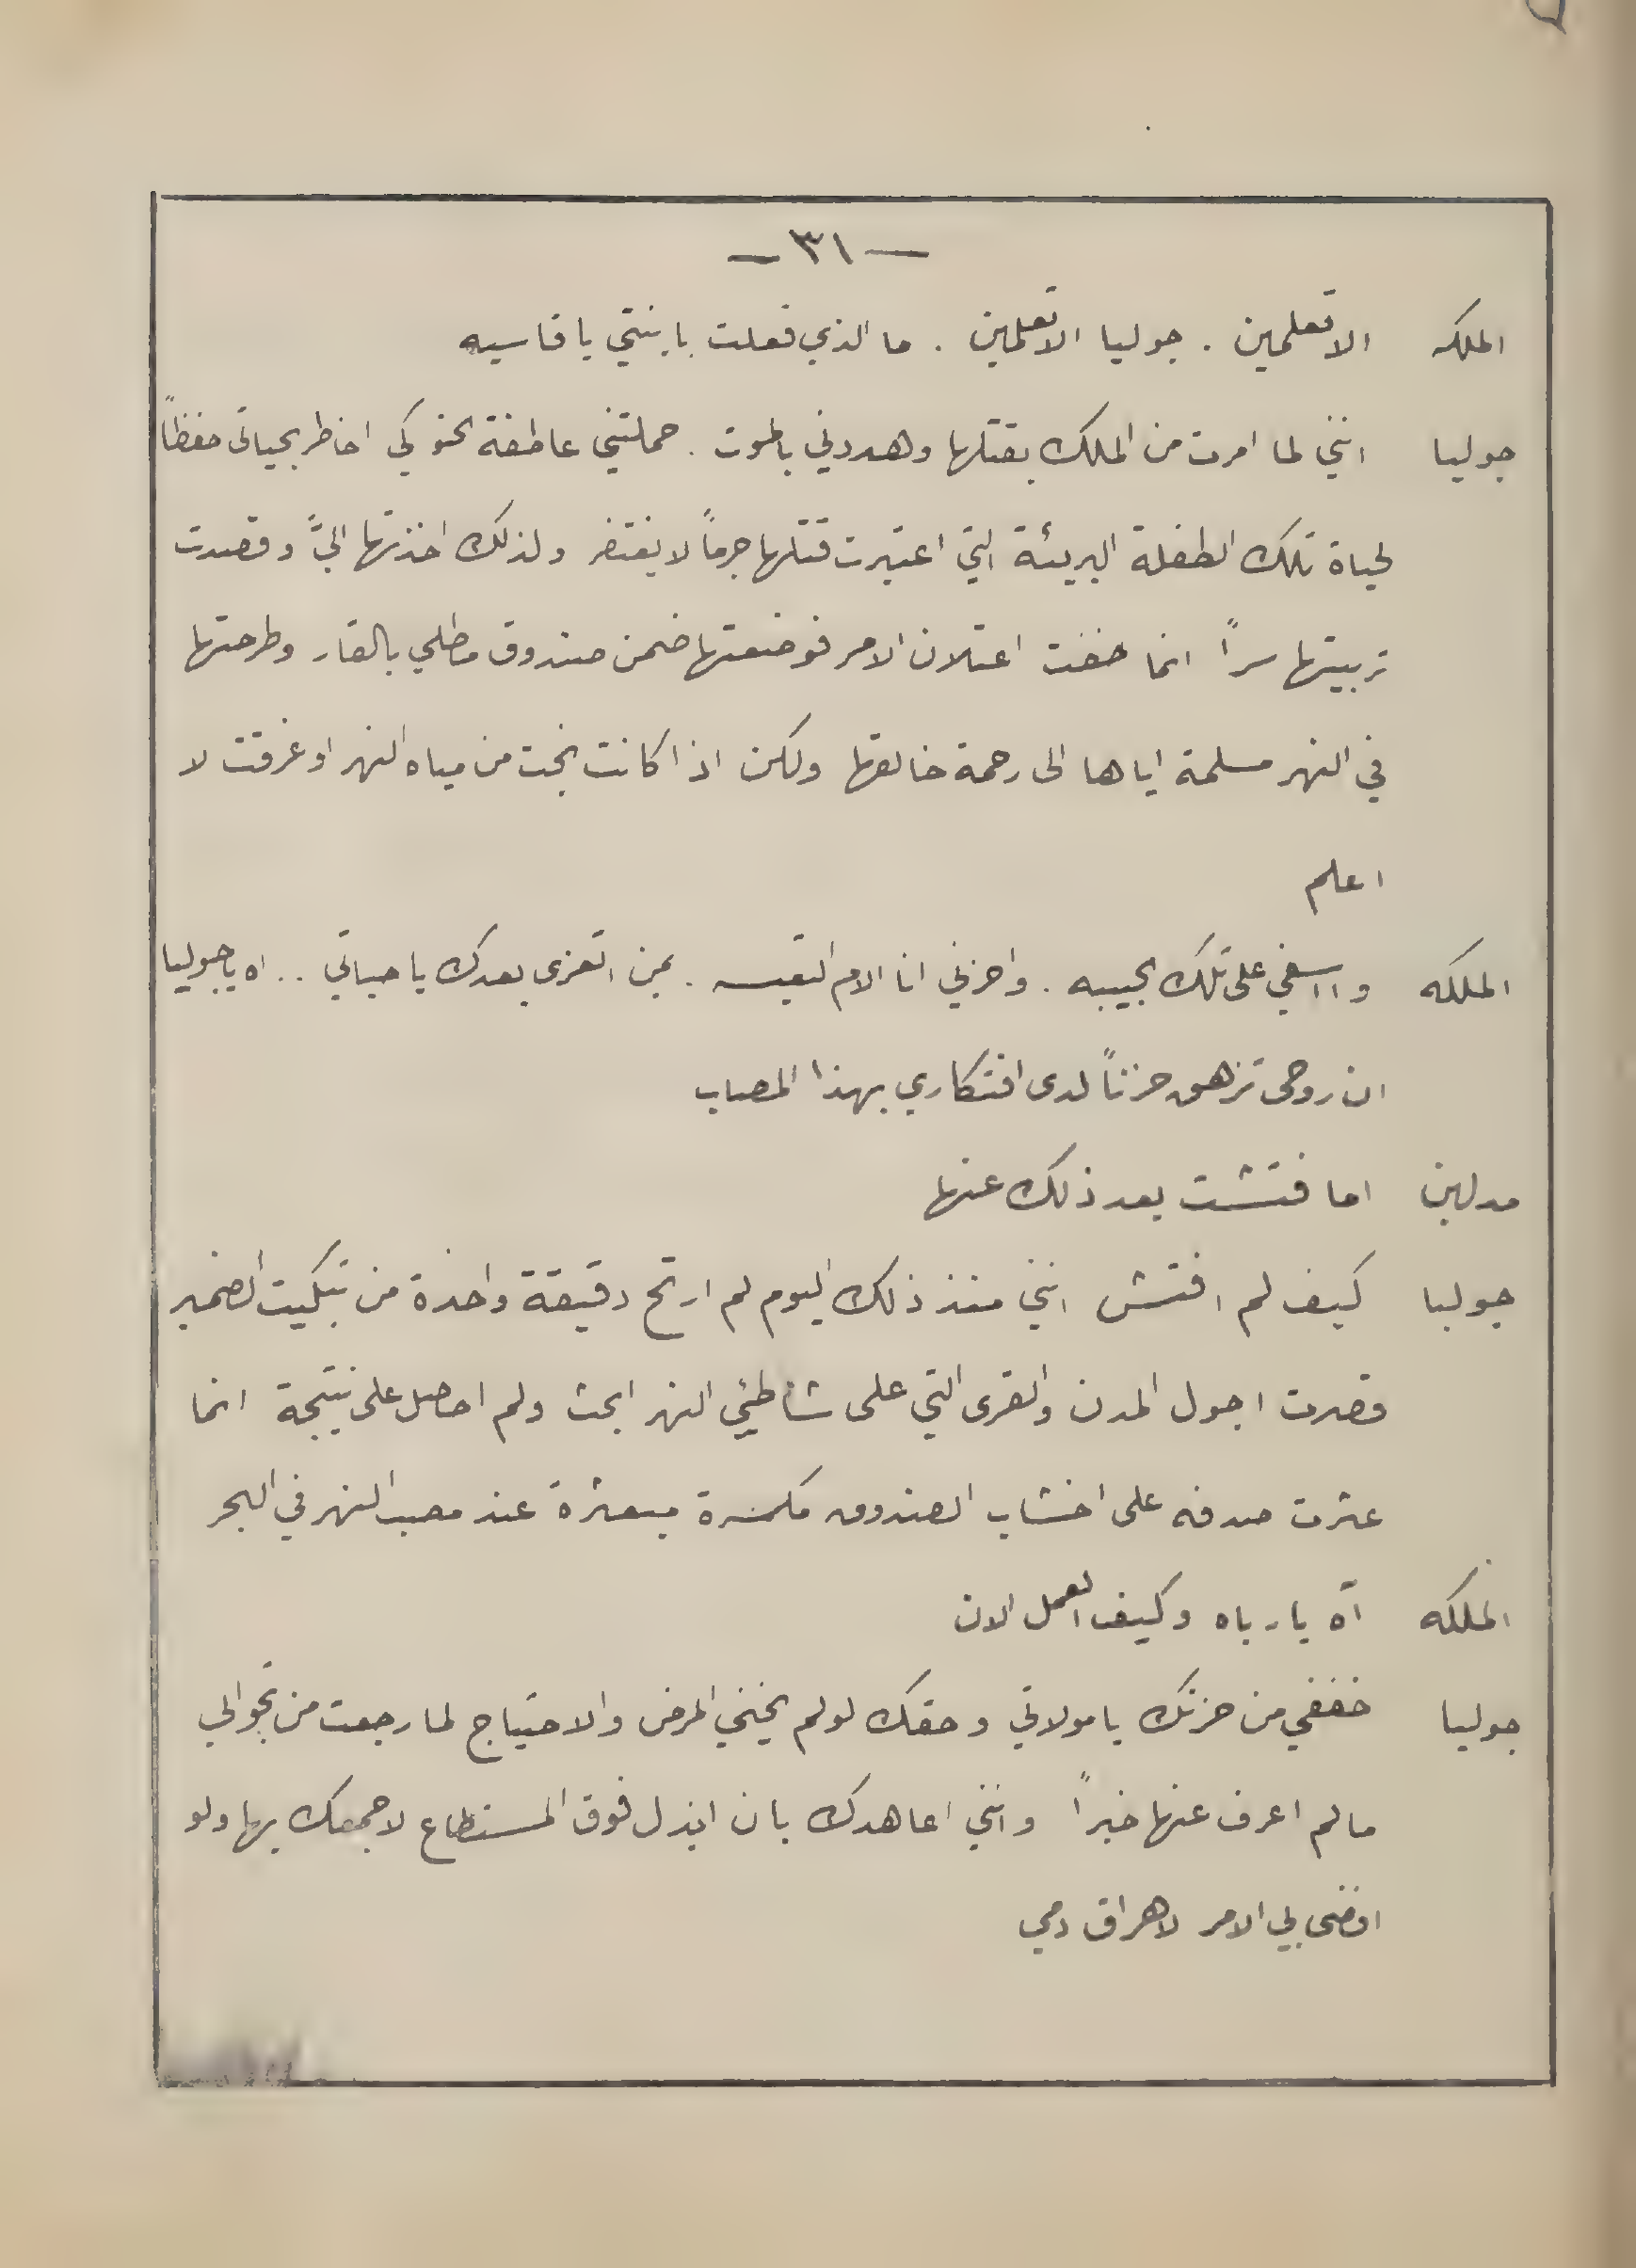 — ٣١ —
الملكه الا تعلمين . جوليا الا تعلمين . ما الذي فعلت بابنتي يا قاسيه
جوليا انني لما امرت من الملك بقتلها وهددني بالموت . حملتني عاطفة الحنو كي اخاطر بحياتى حفظاً
لحياة تلك الطفلة البريئة التي اعتبرت قتلها جرماً لا يغتفر ولذلك اخذتها اليَّ وقصدت
تربيتها سراً انما خفت اعتلان الامر فوضعتها ضمن صندوق مطلي بالقار وطرحتها
في النهر مسلمة اياها الى رحمة خالقها ولكن اذا كانت نجت من مياه النهر او غرقت لا
اعلم
الملكه وا اسفي على تلك الحبيبه . واحزني انا الام التعيسه . بمن اتعزى بعدك يا حياتي .. اه يا جوليا
ان روحى تزهق حزناً لدى افتكاري بهذا المصاب
مدلين اما فتشت بعد ذلك عنها
جوليا كيف لم افتش انني منذ ذلك اليوم لم ارتح دقيقة واحدة من تبكيت الضمير
فصرت اجول المدن والقرى التي على شاطئي النهر ابحث ولم احاصل على نتيجة انما
عثرت صدفه على اخشاب الصندوق مكسرة مبعثرة عند مصب النهر في البحر
الملكه آه يا رباه وكيف العمل الان
جوليا خففي من حزنك يا مولاتي وحقك لو لم يخنني المرض والاحتياج لما رجعت من تجوالي
ما لم اعرف عنها خبراً وانني اعاهدك بان ابذل فوق المستطاع لاجمعك بها ولو
افضى بي الامر لاهراق دمي